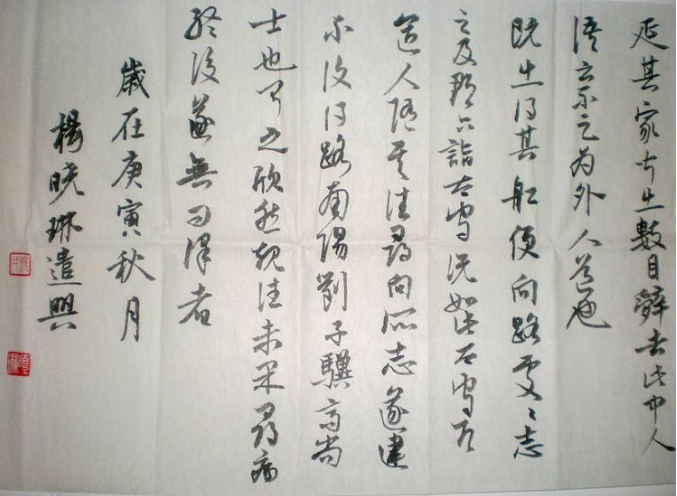 延其家皆出數日辭去此中人
語云不足為外人道也
既出得其舡便向路處〻志
之及郡下詣太守說如此太守即
遣人隨其往尋向所志遂迷
不復得路南陽劉子驥高尚
士也聞之欣然規往未果尋病
終後遂無問津者
歲在庚寅秋月
楊曉琳遣興